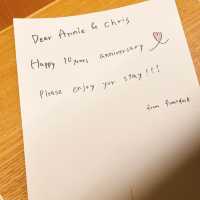 Dear Annie & Chris
Happy 10 years anniversary
Please enjoy your stay!!!
from Frontdesk